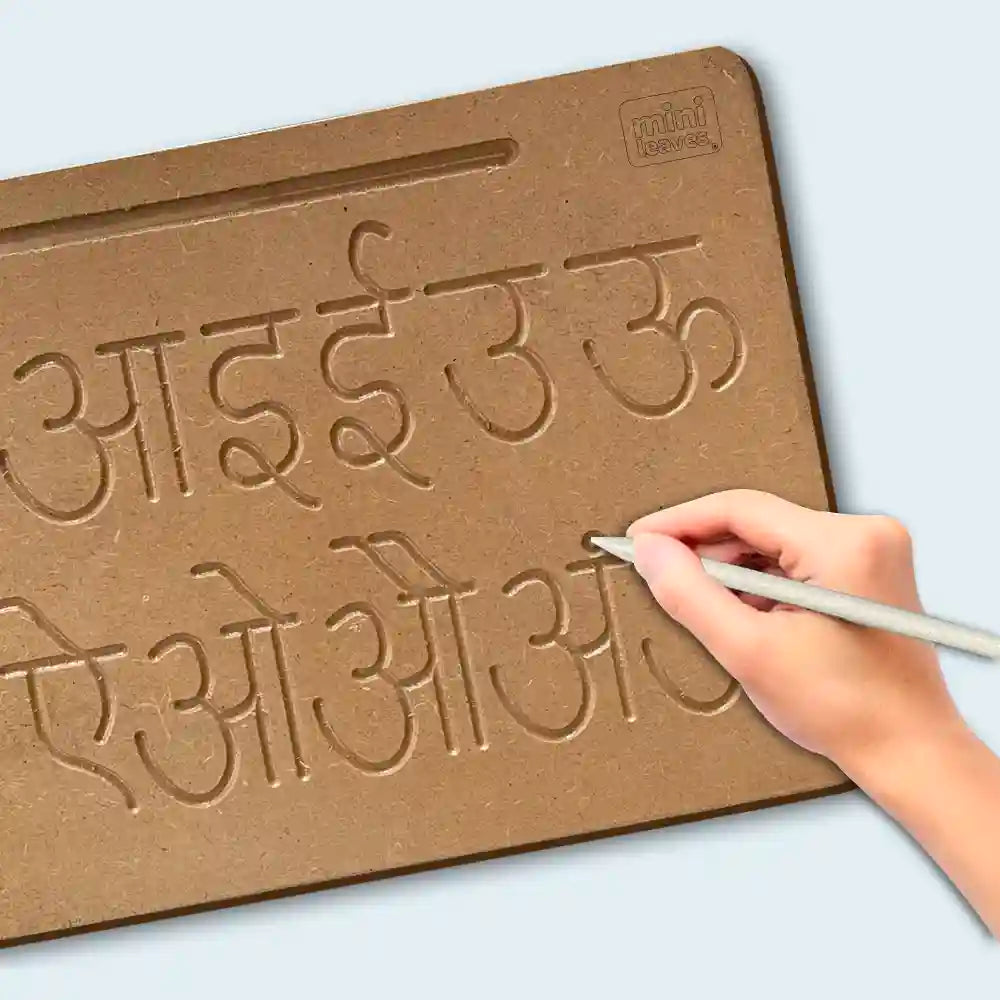 mini
leaves®
आ इ ई उ ऊ
ऐ ओ औ अं